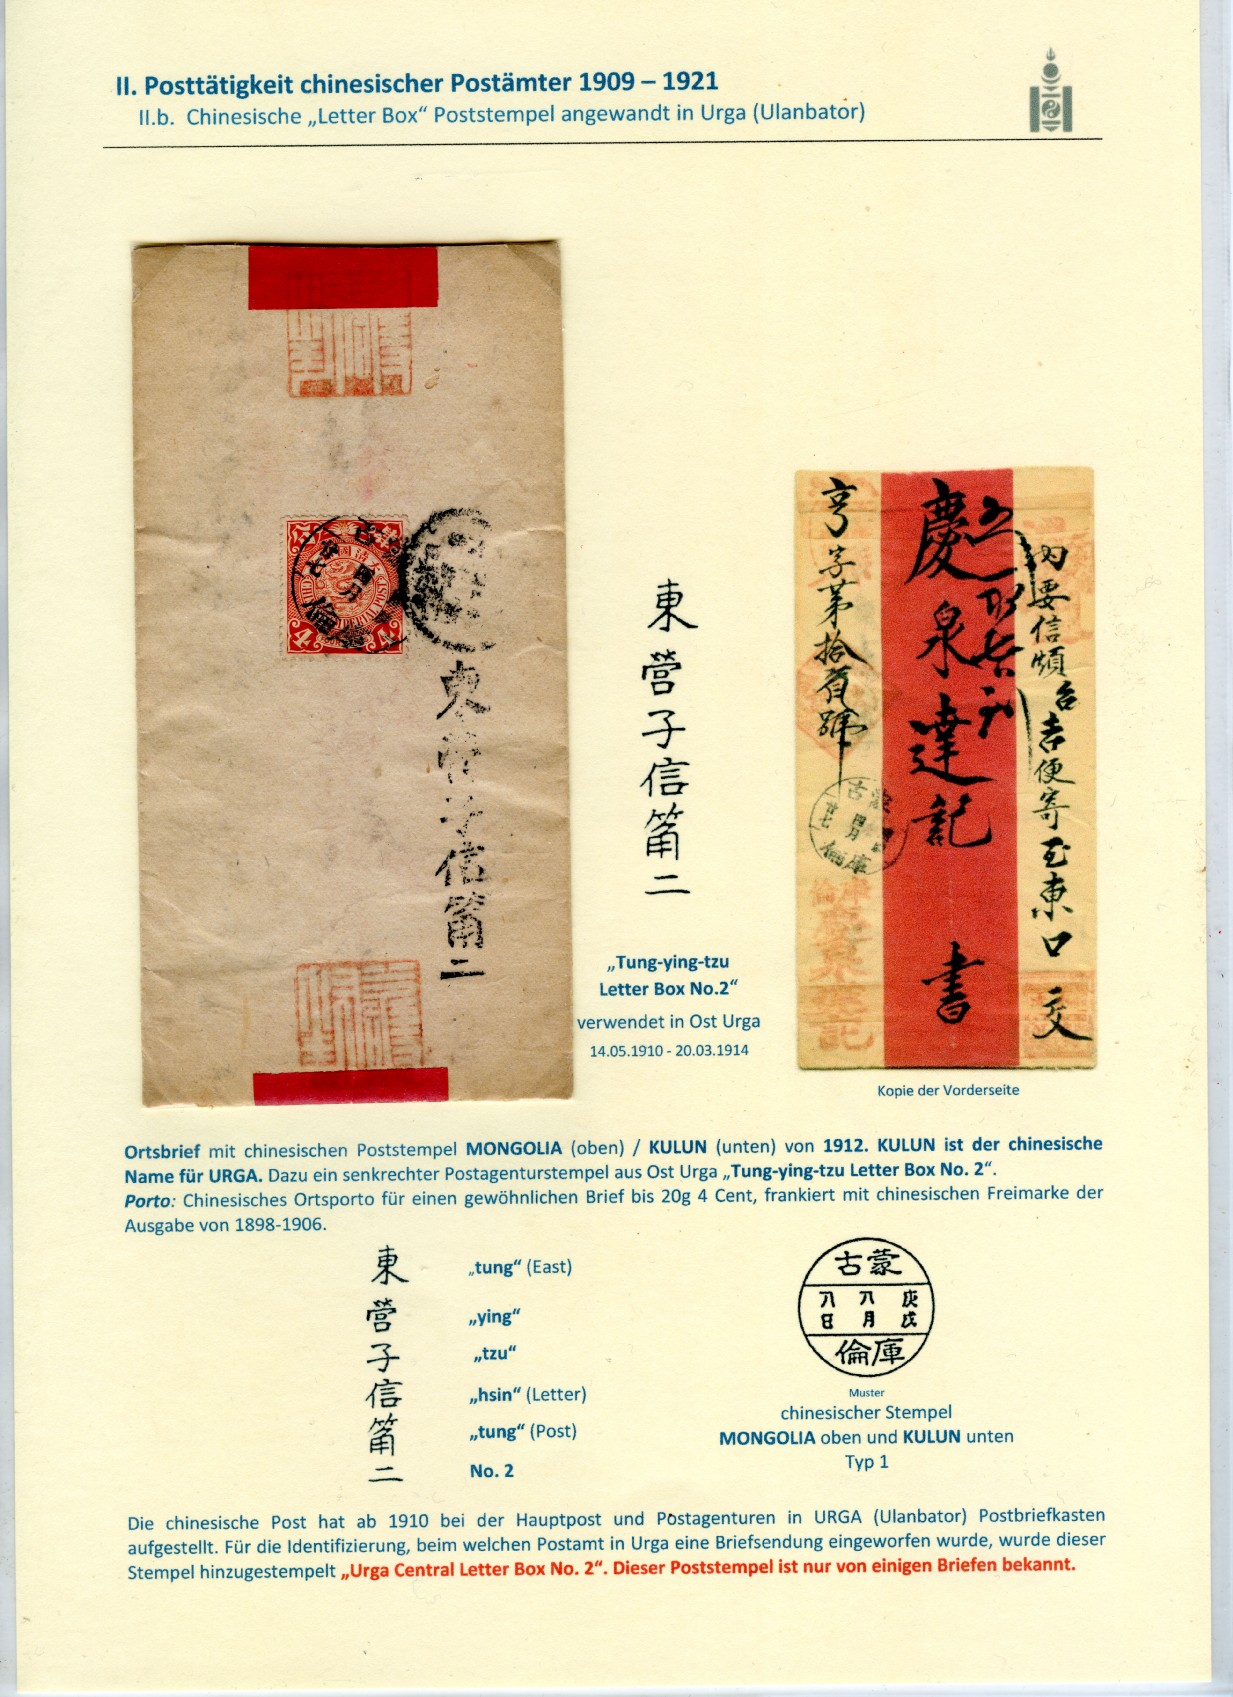 II. Posttätigkeit chinesischer Postämter 1909 – 1921
II.b. Chinesische „Letter Box“ Poststempel angewandt in Urga (Ulanbator)
4
4
東營子信筩二
東營子信筩二
„Tung-ying-tzu
Letter Box No.2“
verwendet in Ost Urga
14.05.1910 - 20.03.1914
內要信煩台吉便寄至東口 交
慶泉達記 書
亨字第拾 號
蒙古
四月
廿七
庫倫
Kopie der Vorderseite
Ortsbrief mit chinesischen Poststempel MONGOLIA (oben) / KULUN (unten) von 1912. KULUN ist der chinesische
Name für URGA. Dazu ein senkrechter Postagenturstempel aus Ost Urga „Tung-ying-tzu Letter Box No. 2“.
Porto: Chinesisches Ortsporto für einen gewöhnlichen Brief bis 20g 4 Cent, frankiert mit chinesischen Freimarke der
Ausgabe von 1898-1906.
東 „tung“ (East)
營 „ying“
子 „tzu“
信 „hsin“ (Letter)
筩 „tung“ (Post)
二 No. 2
古蒙
八日 八月 庚戌
倫庫
Muster
chinesischer Stempel
MONGOLIA oben und KULUN unten
Typ 1
Die chinesische Post hat ab 1910 bei der Hauptpost und Postagenturen in URGA (Ulanbator) Postbriefkasten
aufgestellt. Für die Identifizierung, beim welchen Postamt in Urga eine Briefsendung eingeworfen wurde, wurde dieser
Stempel hinzugestempelt „Urga Central Letter Box No. 2“. Dieser Poststempel ist nur von einigen Briefen bekannt.